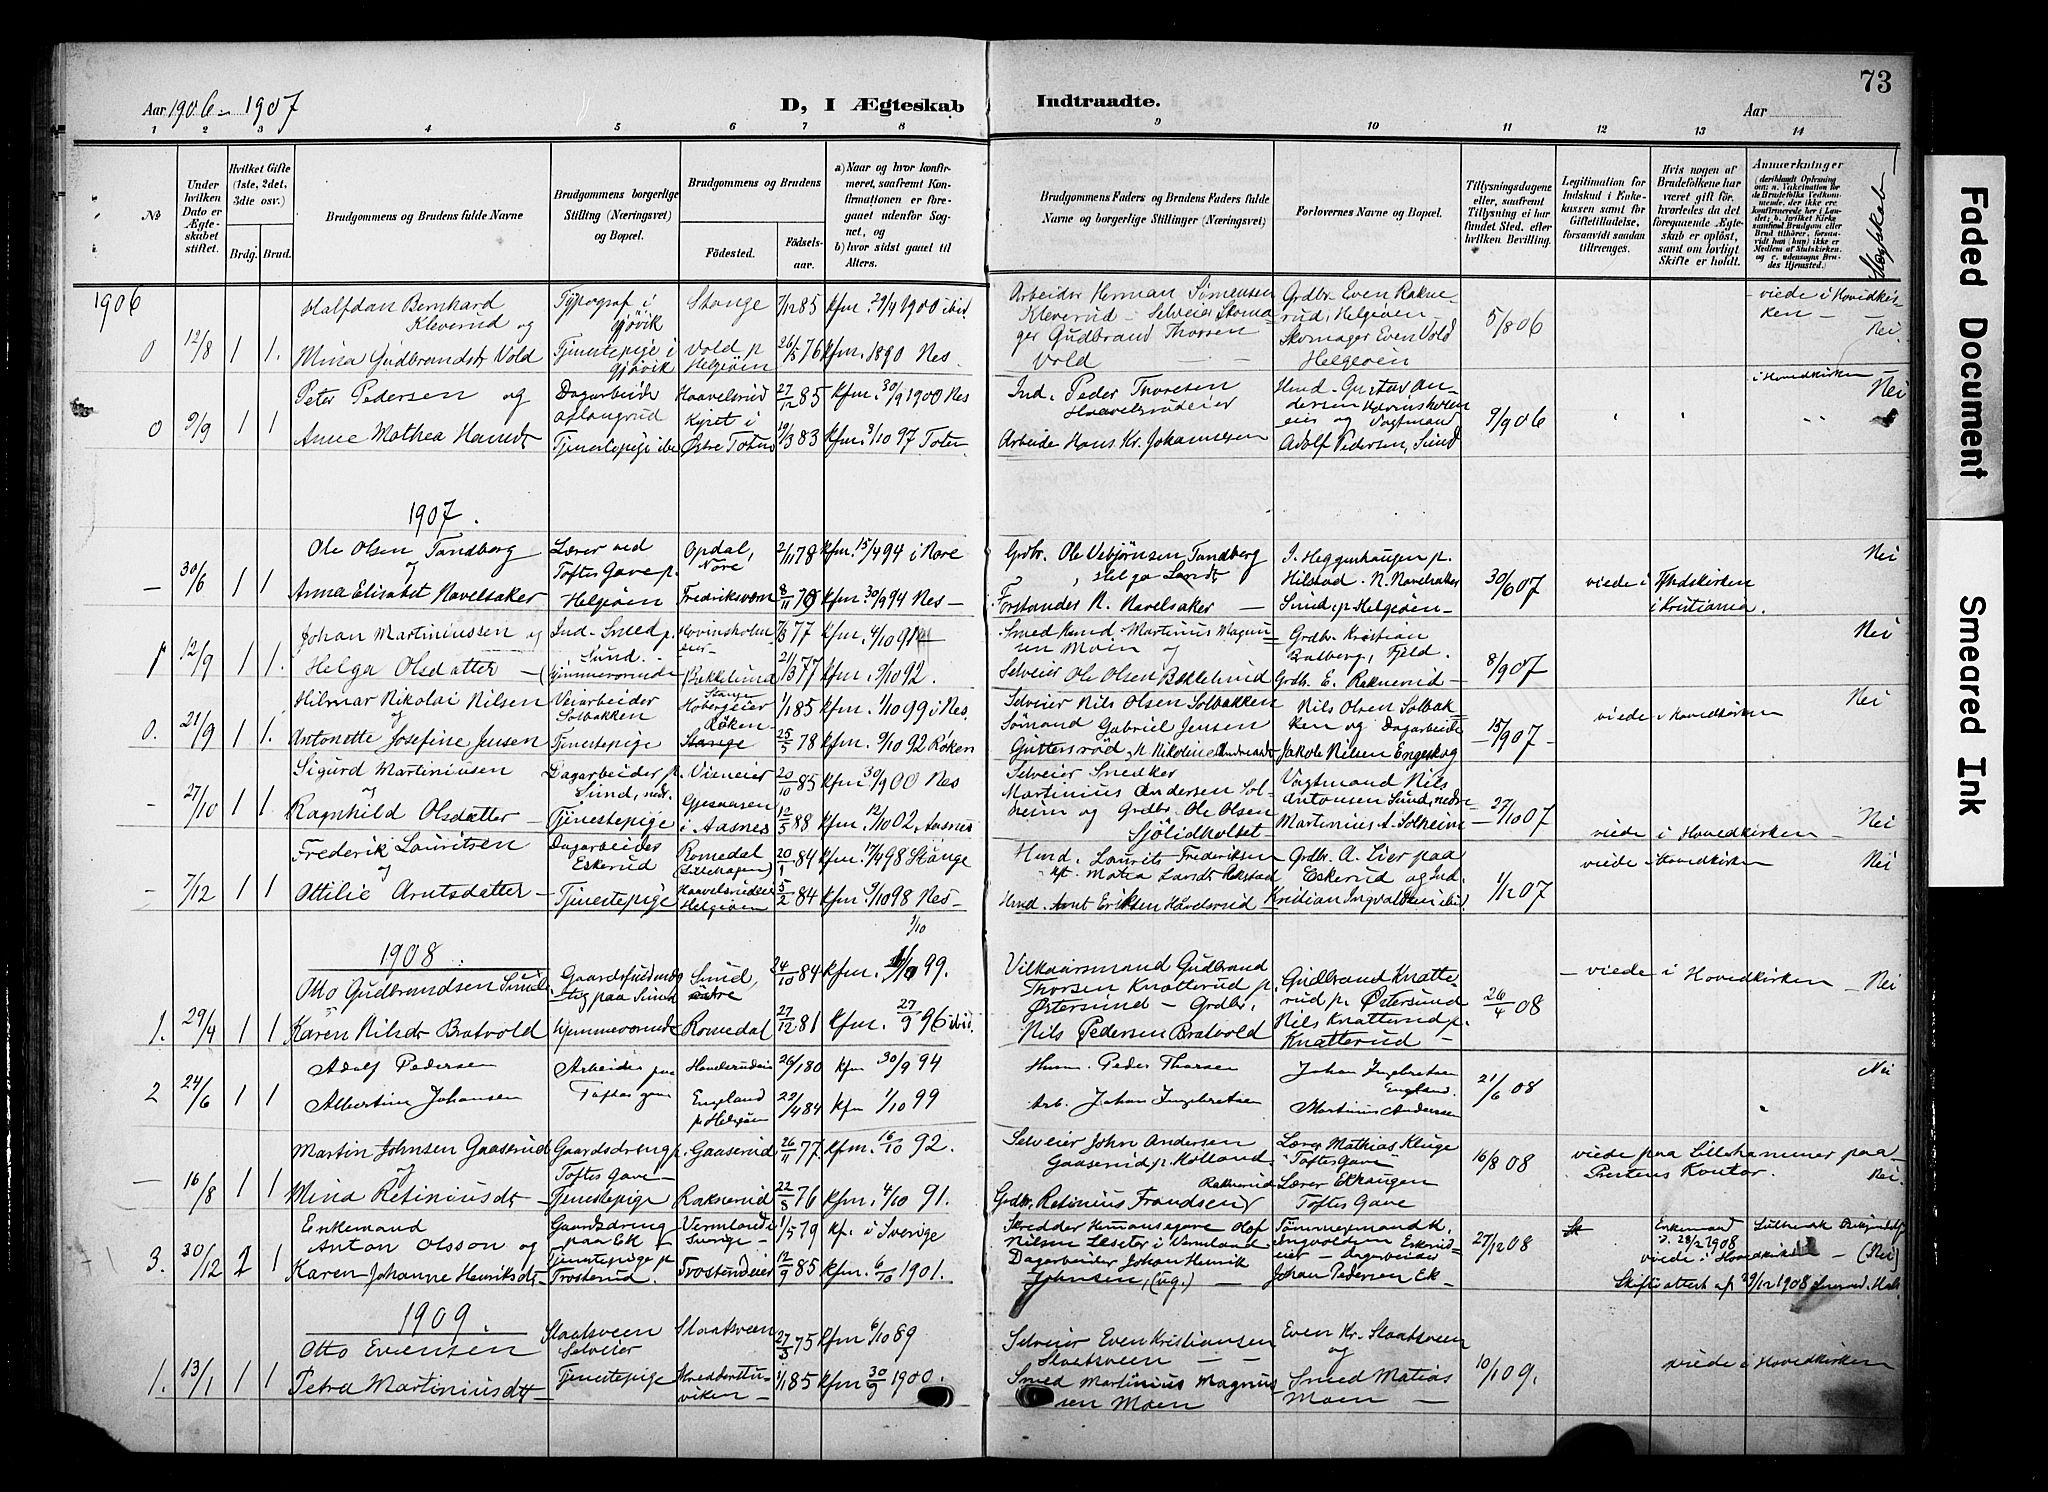 73
Aar 1906 - 1907
D, I Ægteskab Indtraadte.
Aar
1 2 3 4 5 6 7 8 9 10 11 12 13 14
No
Under hvilken Dato er Ægteskabet stiftet.
Hvilket Gifte (1ste, 2det, 3die osv.)
Brdg. Brud.
Brudgommens og Brudens fulde Navne
Brudgommens borgerlige Stilling (Næringsvei) og Bopæl.
Brudgommens og Brudens
Fødested.
Fødselsaar.
a) Naar og hvor konfirmeret, saafremt Konfirmationen er foregaaet udenfor Sognet, og
b) hvor sidst gaaet til Alters.
Brudgommens Faders og Brudens Faders fulde Navne og borgerlige Stillinger (Næringsvei)
Forlovernes Navne og Bopæl.
Tillysningsdagene eller, saafremt Tillysning ei har fundet Sted, efter hvilken Bevilling.
Legitimation for Indskud i Kokekassen samt for Giftetilladelse, forsaavidt saadan tiltrænges.
Hvis nogen af Brudefolkene har været gift før, hvorledes da det foregaaende Ægteskab er opløst, samt om lovligt Skifte er holdt.
Anmærkninger
Slægtskab
1906
12/8 1 1. Halfdan Bernhard Kleverud og Typograf i Gjøvik Stange 7/12 85 kfm. 29/4 1900 ibid. Arbeider Herman Simensen Kleverud - Selveier Skomager Gudbrand Thorsen Vold Grdbr. Even Raknerud, Helgeøen Skomager Even Vold Helgeøen 5/8 06 viede i Hovedkirken - Nei.
0 Mina Gudbrandsdt Vold Tjenestepige i Gjøvik Vold p Helgeøen 26/5 76 kfm. 1890 Nes.
0 9/9 1 1 Peter Pedersen og Dagarbeide Haavelsrud 27/12 85 kfm. 30/9 1900 Nes Ind. Peder Thoresen Haavelsrudeier Hmd. Gustav Andersen Hovinsholmeier og Vogtmand Adolf Pedersen, Sund 9/9 06 i Hovedkirken Nei
Anne Mathea Hansdt Tjenestepige ibd Kjret i Østre Toten 19/3 83 kfm. 3/10 97 Toten Arbeide Hans Kr. Johannesen
1907.
30/6 1 1 Ole Olsen Tandberg og Lærer ved Toftes Gave p. Helgeøen Opdal, Nore 2/11 78 kfm. 15/4 94 i Nore Grdbr. Ole Vebjörnsen Tandberg, Helga Larsdt I. Heggenhaugen p. Hilstad - N. Navelsaker Sund p Helgeøen - 30/6 07 viede i Fødskirken i Kristiania. Nei
Anna Elisabet Navelsaker Fredriksværn 8/11 78 kfm. 30/9 94 Nes - Forstander N. Navelsaker
1 12/9 1 1. Johan Martiniussen og Ind - Smed p. Sund. Hovinsholmeier - 7/3 77 kfm. 4/10 91 Smed Hmd. Martinius Magnussen Moen og Grdbr. Kristian Bratberg, Fjeld. 8/9 07 Nei
Helga Olsdatter - (hjemmeværende Bakkelund 21/3 77 kfm. 9/10 92. Selveier Ole Olsen Bakkelund Grdbr. E. Raknerud -
0. 21/9 1 1. Hilmar Nikolai Nilsen og Veiarbeider Solbakken Stange Hobergeier 1/1 85 kfm. 1/10 99 i Nes. Selveier Nils Olsen Solbakken Nils Olsen Solbakken og Dagarbeide 15/9 07 viede i Hovedkirken Nei
Antonette Josefine Jensen Tjenestepige Röken Stange 25/5 78 kfm. 9/10 92 Röken Sömand Gabriel Jensen Guttersröd, Nikoline Andreasdt Jakob Nilsen Engeskog
27/10 1 1 Sigurd Martiniusen og Dagarbeider p. Sund, nedr. Vieneier 20/10 85 kfm. 30/9 00 Nes Selveier Snedker Martinius Andersen Solheim og Grdbr. Ole Olsen Sjölidholtet - Vogtmand Nils Antonsen Sund, nedre Martinius A. Solheim 27/10 07 viede i Hovedkirken - Nei
Ragnhild Olsdatter - Tjenestepige Gjesaasen i Aasnes 12/5 88 kfm. 12/10 02, Aasnes
7/12 1 1 Frederik Lauritsen og Dagarbeides Eskerud Romedal 20/1 84 kfm. 17/4 98 Stange Hmd. Laurits Frederiksen Grdbr. A. Lier paa Eskerud og Ind. Kristian Ingvaldsen ibid. 1/12 07 viede i Hovedkirken Nei
Ottilie Arntsdatter - Tjenestepige Haavelsrudeier Helgeøen 5/2 84 kfm. 9/10 98 Nes - Hmd. Arnt Eriksen Håvelsrud
1908
1. 29/4 1 1 Otto Gudbrandsen Sund Gaardsfuldmægtig paa Sund Sund, østre 24/10 84 kfm. 1/10 99. Vilkaarsmand Gudbrand Thorsen Knatterud p. Østersund - Grdbr. Nils Pedersen Bratvold Gudbrand Knatterud p. Østersund Nils Knatterud p. Knatterud - 26/4 08 - viede i Hovedkirken - Nei
Karen Nilsdt Bratvold hjemmeværende Romedal 27/12 81 kfm. 27/9 96 ibid.
2 24/6 1 1 Adolf Pedersen Arbeider paa Toftes gave Havelsrudeie 26/1 80 kfm 30/9 94 Hmm. Peder Thorsen Johan Ingebretsen England. 21/6 08 Nei
Albertine Johansen Engeland p. Helgøen 22/4 84 kfm 1/10 99 Arb. Johan Ingebretsen Martinius Andersen
16/8 1 1 Martin Johnsen Gaaserud og Gaardsdreng p. Toftes Gave - Gaaserud 26/11 77 kfm. 16/10 92. Selveier John Andersen Gaaserud p. Holland Lærer Mathias Kluge Toftes Gave 16/8 08 viede paa Lillehammer paa Prestens Kontor. Nei.
Mina Retiniusdt - Tjenestepige Rakserud 22/5 76 kfm. 4/10 91. Grdbr. Retinius Frandsen Lærer Ekhaugen Toftes Gave
3. 30/12 2 1 Enkemand Anton Olsson og Gaardsdreng paa Ek Vermland Sverige - 1/5 79 kf. i Sverige Skredder Olof Nilsen Leseter i Vermland Tømmermand K. Ingvoldsen Eskerudeier - Dagarbeide Johan Pedersen Ek - 27/12 08 Enkemand d. 28/2 1908 viede i Hovedkirken - (Nei)
Karen Johanne Henriksdt Tjenestepige p. Trosterud. Trosterudeier 12/9 85 kfm. 6/10 1901. Dagarbeider Johan Henrik Johnsen, (ug.) - Skifteattest af 29/12 1908
1909.
1. 13/1 1 1 Otto Evensen Slaatsveen Selveier Slaatsveen 27/5 75 kfm 6/10 89 Selveier Even Kristiansen Slaatsveen - - Even Kr. Slaatsveen og 10/1 09. viede i Hovedkirken
Petra Martiniusdt Tjenestepige Skredderstuviken - 1/1 85 kfm 30/9 1900. Smed Martinius Magnussen Moen Smed Matias Moen -
Faded Document
Smeared Ink